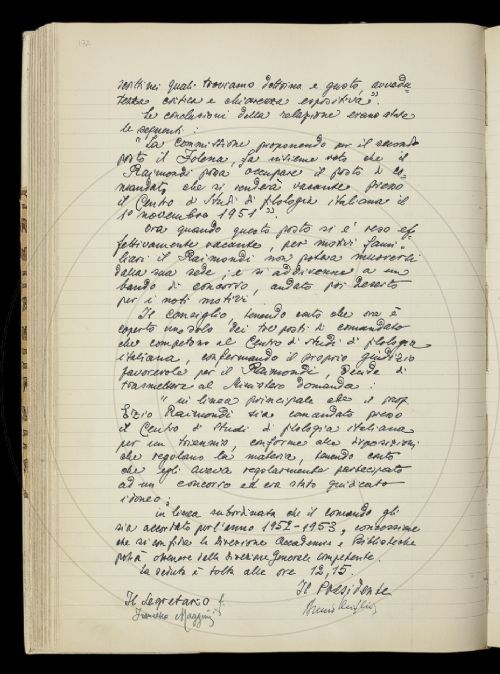 172
scritti nei quali troviamo dottrina e gusto, avvedu=
tezza critica e chiarezza espositiva".
Le conclusioni della relazione erano state
le seguenti:
"La Commissione proponendo per il secondo
posto il Folena, fa insieme voto che il
Raimondi possa occupare il posto di co=
mandato che si renderà vacante presso
il Centro di Studi di filologia italiana il
1º novembre 1951".
Ora quando questo posto si è reso ef=
fettivamente vacante, per motivi fami=
liari il Raimondi non poteva muoversi
dalla sua sede, e si addivenne a un
bando di concorso, andato poi deserto
per i noti motivi.
Il Consiglio, tenendo conto che ora è
coperto uno solo dei tre posti di comandato
che competono al Centro di Studi di filologia
italiana, confermando il proprio giudizio
favorevole per il Raimondi, decide di
trasmettere al Ministero domanda:
"in linea principale che il prof.
Ezio Raimondi sia comandato presso
il Centro di Studi di filologia italiana
per un triennio, conforme alle disposizioni
che regolano la materia, tenendo conto
che egli aveva regolarmente partecipato
ad un concorso ed era stato giudicato
idoneo;
in linea subordinata che il comando gli
sia accordato per l'anno 1952-1953, concessione
che si confida la Direzione Accademie e Biblioteche
potrà ottenere dalla Direzione Generale competente.
La seduta è tolta alle ore 12,15.
Il Presidente
Il Segretario